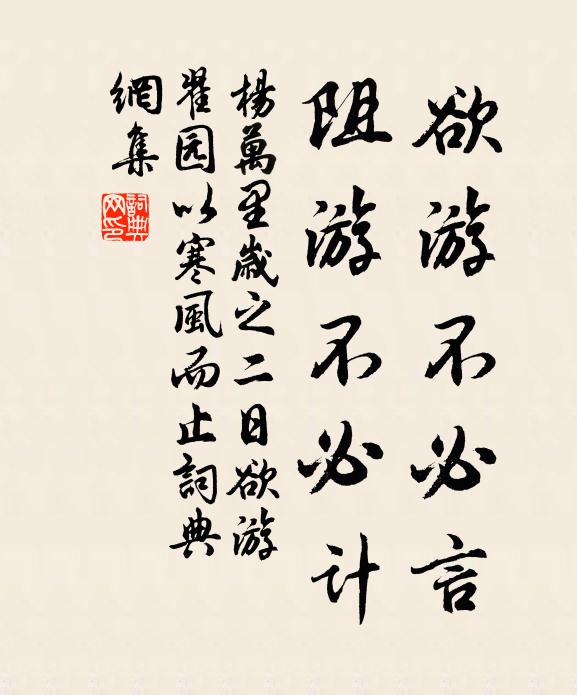 欲游不必言
阻游不必计
楊萬里歲之二日欲游
翟园以寒風而止詞典
網集
詞典网印